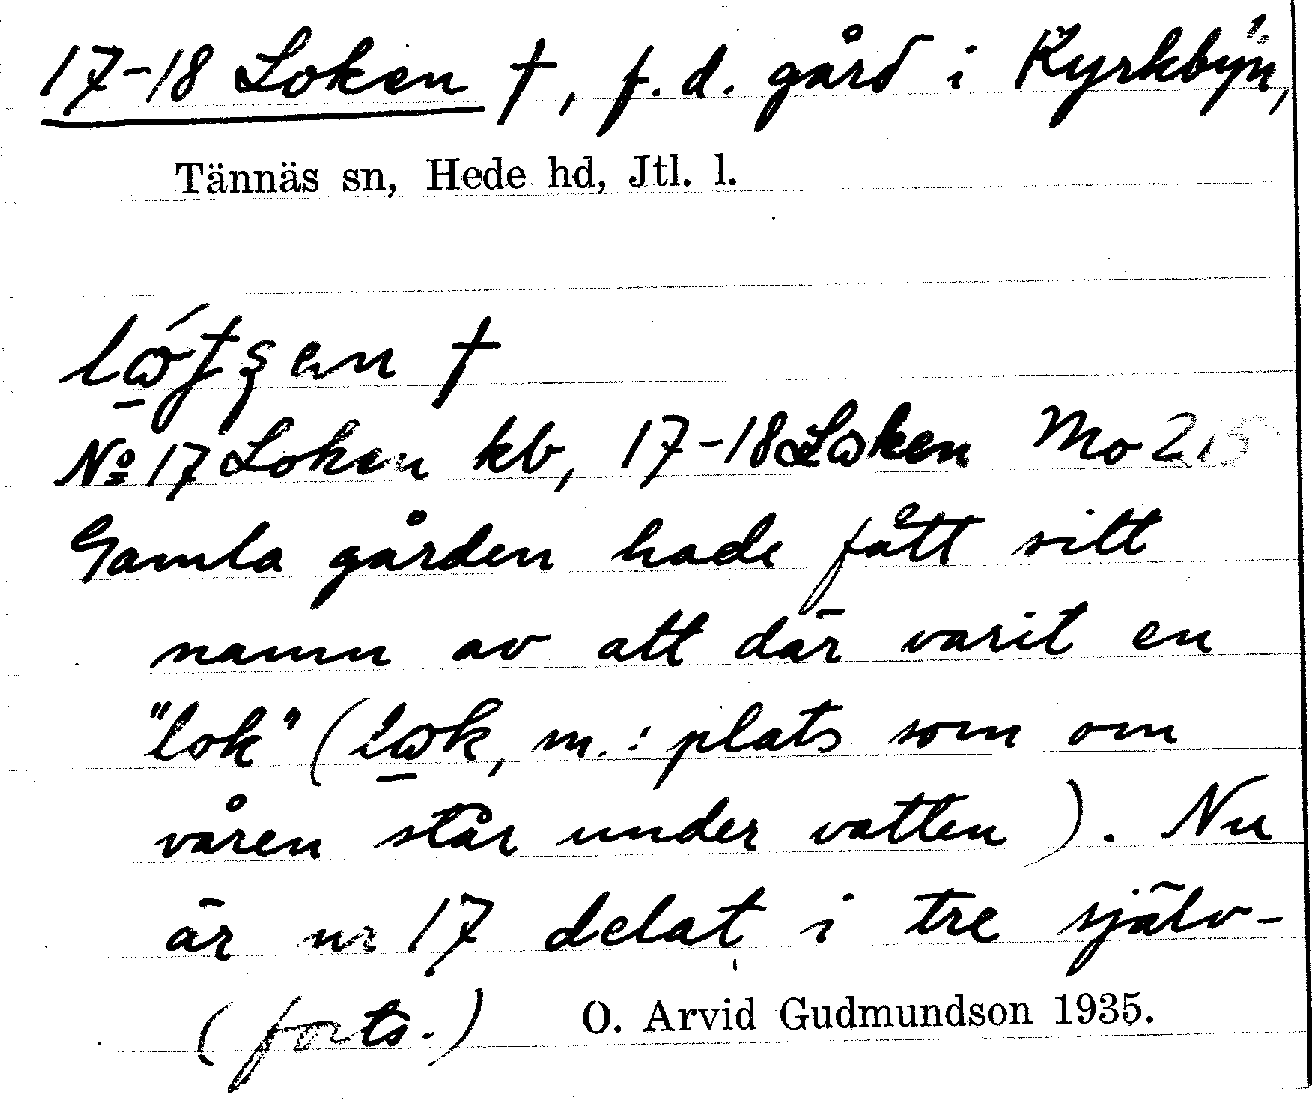 17-18 Loken †, f.d. gård i Kyrkbyn,
Tännäs sn, Hede hd, Jtl. l.
†
No 17 Loken kb, 17-18 Loken Mo 215
Gamla gården hade fått sitt
namn av att där varit en
"lok" (lωk, m.: plats som om
våren står under vatten). Nu
är nr 17 delat i tre själv-
(forts.) O. Arvid Gudmundson 1935.